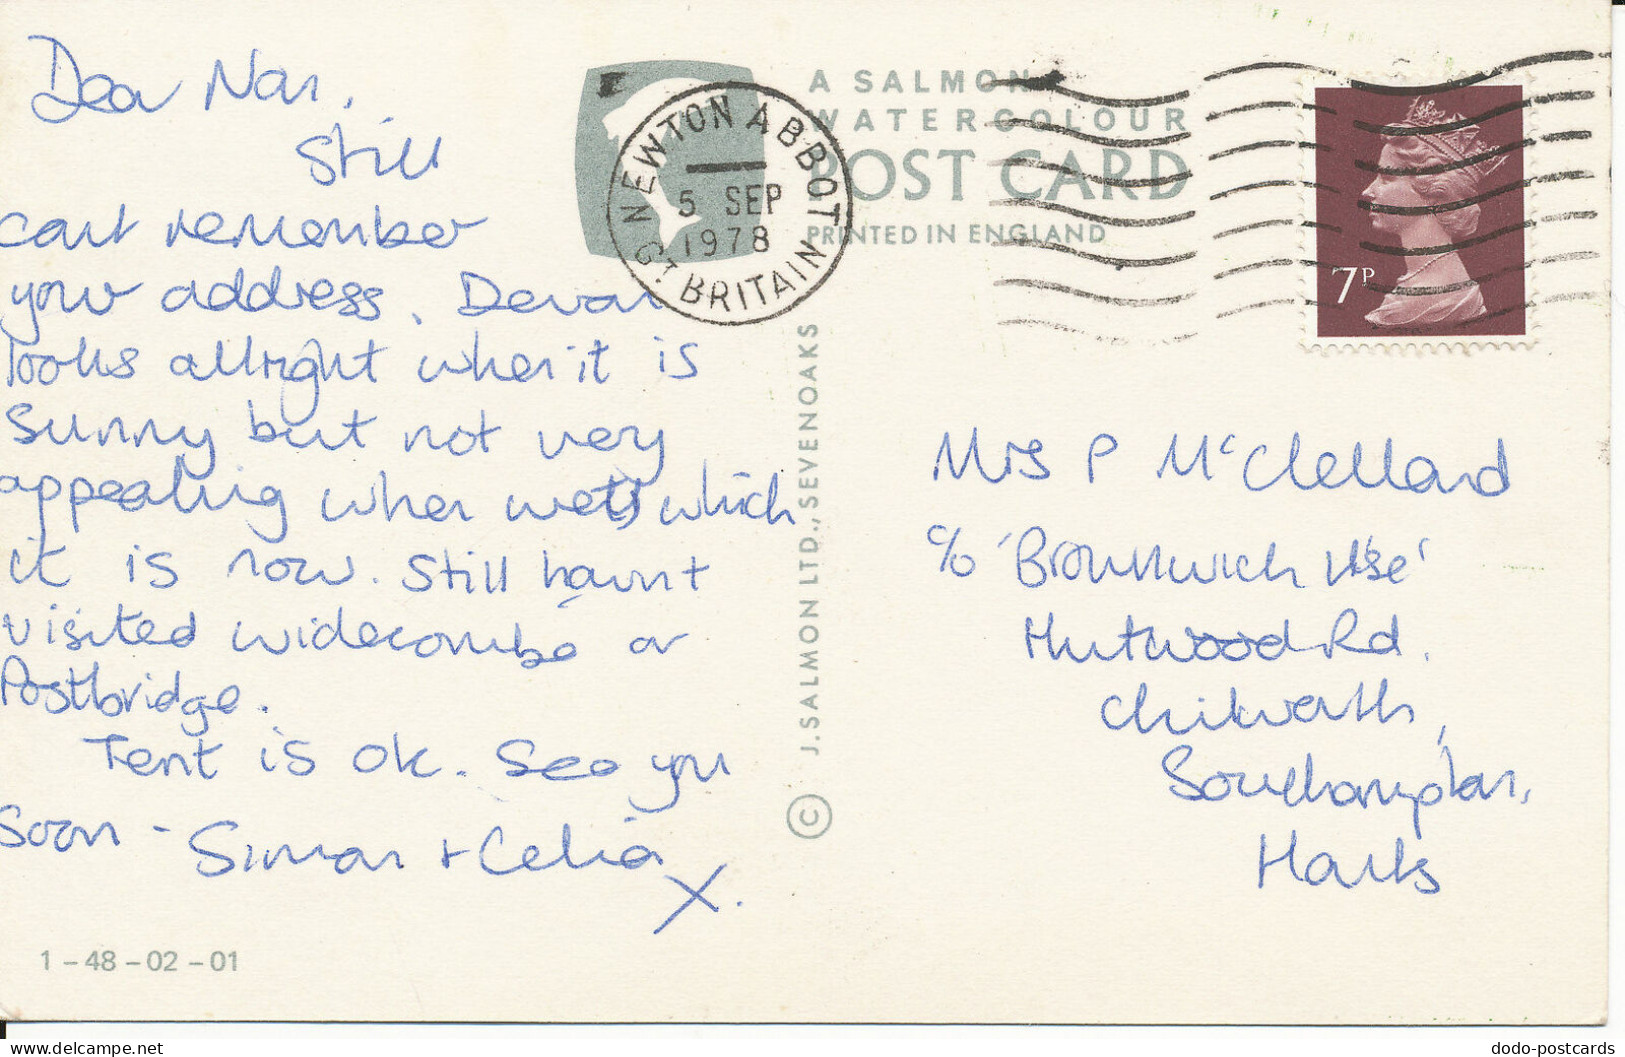 Dear Nan,
Still
cant remember
your address. Devon
looks allright when it is
Sunny but not very
appealing when wet, which
it is now. Still havn't
visited widecombe or
Postbridge.
Tent is ok. See you
Soon - Simon + Celia
X.
1 – 48 – 02 – 01
NEWTON ABBOT
5 SEP
1978
GT. BRITAIN
A SALMON
WATERCOLOUR
POST CARD
PRINTED IN ENGLAND
© J. SALMON LTD., SEVENOAKS
7P
Mrs P McClelland
c/o 'Brownwich Hse'
Hutwood Rd.
Chilworth,
Southampton,
Hants
delcampe.net
dodo-postcards